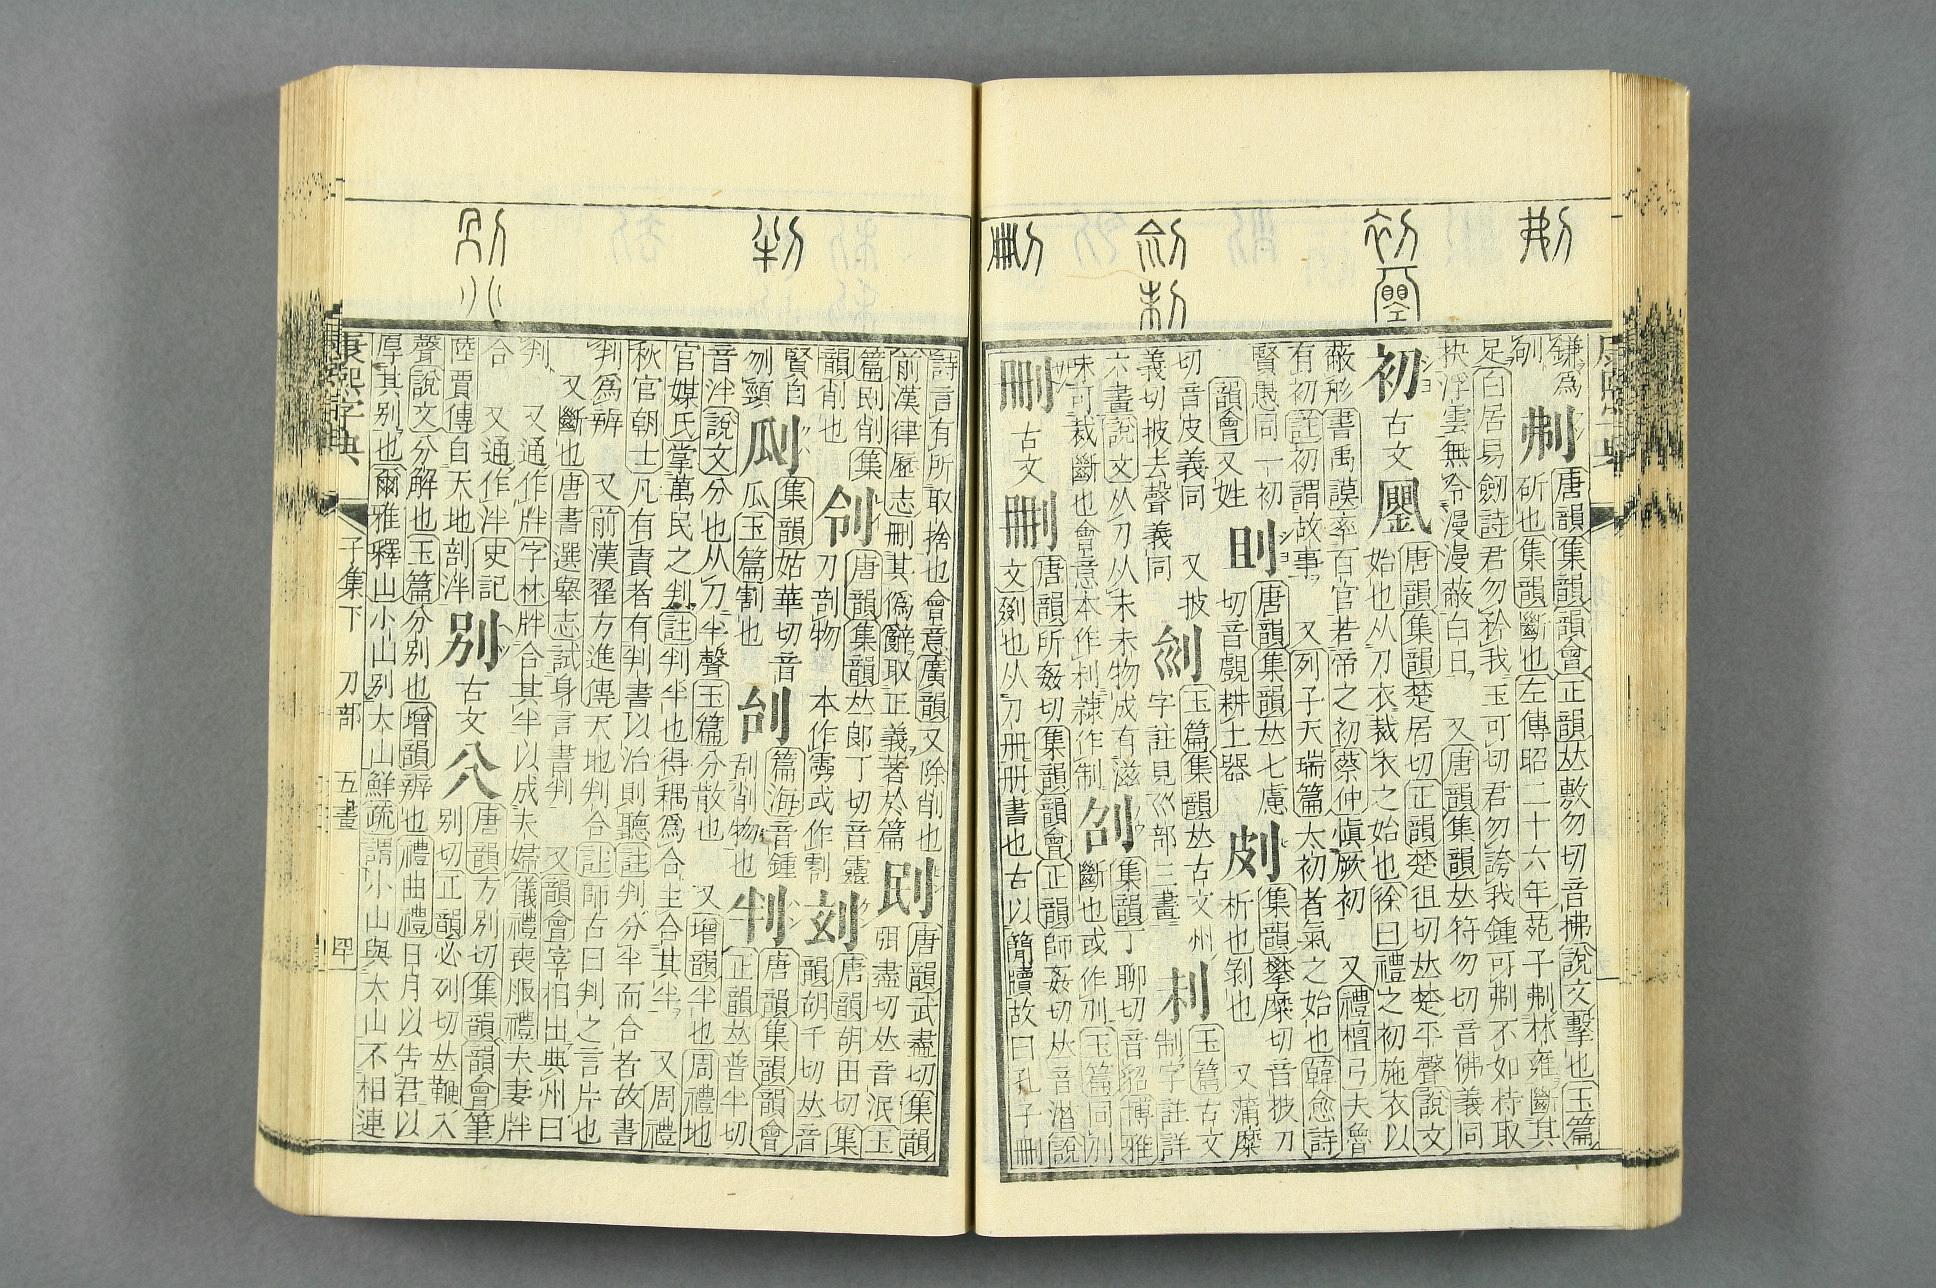 鎌爲刎
刜 唐韻集韻韻會正韻𠀤敷勿切音拂說文擊也玉篇
斫也集韻斷也左傳昭二十六年苑子刜林雍斷其
足白居易劒詩君勿矜我玉可切君勿誇我鍾可刜不如持取
抉浮雲無令漫漫蔽白日 又唐韻集韻𠀤符勿切音佛義同
初 古文 唐韻集韻楚居切正韻楚徂切𠀤楚平聲說文
始也从刀衣裁衣之始也徐曰禮之初施衣以
蔽形書禹謨率百官若帝之初蔡仲愼厥初 又禮檀弓夫魯
有初註初謂故事 又列子天瑞篇太初者氣之始也韓愈詩
賢愚同一初
韻會又姓
刞 唐韻集韻𠀤七慮
切音覰耕土器
㓟 集韻攀糜切音披刀
析也剝也 又蒲糜
切音皮義同 又披
義切披去聲義同
玉篇集韻𠀤古文州
字註見巛部三畫
玉篇古文
制字註詳
六畫說文从刀从未未物成有滋
味可裁斷也會意本作利隸作制
刟 集韻丁聊切音貂博雅
斷也或作刟玉篇同刟
刪 古文 唐韻所姦切集韻韻會正韻師姦切𠀤音潸說
文剟也从刀冊冊書也古以簡牘故曰孔子刪
詩言有所取捨也會意廣韻又除削也
前漢律歷志刪其僞辭取正義著於篇
刡 唐韻武盡切集韻
弭盡切𠀤音泯玉
篇刡削集
韻削也
刢 唐韻集韻𠀤郎丁切音靈
刀剖物 本作 或作割
唐韻胡田切集
韻胡千切𠀤音
賢自
刎頸
㓡 集韻姑華切音
瓜玉篇割也
篇海音鍾
刮削物也
判 唐韻集韻韻會
正韻𠀤普半切
音泮說文分也从刀半聲玉篇分散也 又增韻半也周禮地
官媒氏掌萬民之判註判半也得耦爲合主合其半 又周禮
秋官朝士凡有責者有判書以治則聽註判分半而合者故書
判爲辨 又前漢翟方進傳天地判合註師古曰判之言片也
又斷也唐書選舉志試身言書判 又韻會宰相出典州曰
判 又通作牉字林牉合其半以成夫婦儀禮喪服禮夫妻牉
合 又通作泮史記
陸賈傳自天地剖泮
別 古文 唐韻方別切集韻韻會筆
別切正韻必列切𠀤鞭入
聲說文分解也玉篇分別也增韻辨也禮曲禮日月以告君以
厚其別也爾雅釋山小山別大山鮮疏謂小山與大山不相連
康熙字典 子集下 刀部 五畫